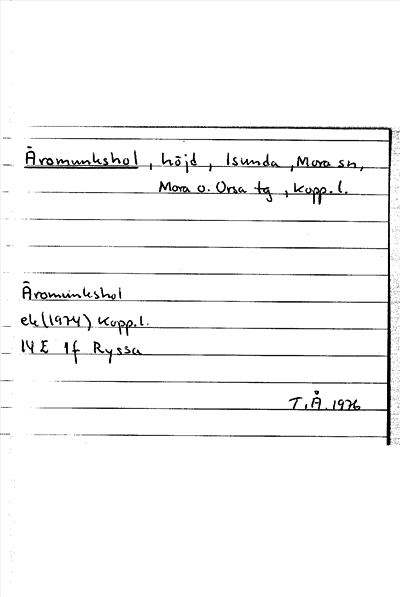 Äromunkshol, höjd, Isunda, Mora sn,
Mora o. Orsa tg, Kopp.l.
Äromunkshol
ek(1974) Kopp.l.
14 E 1f Ryssa
T.Å. 1976